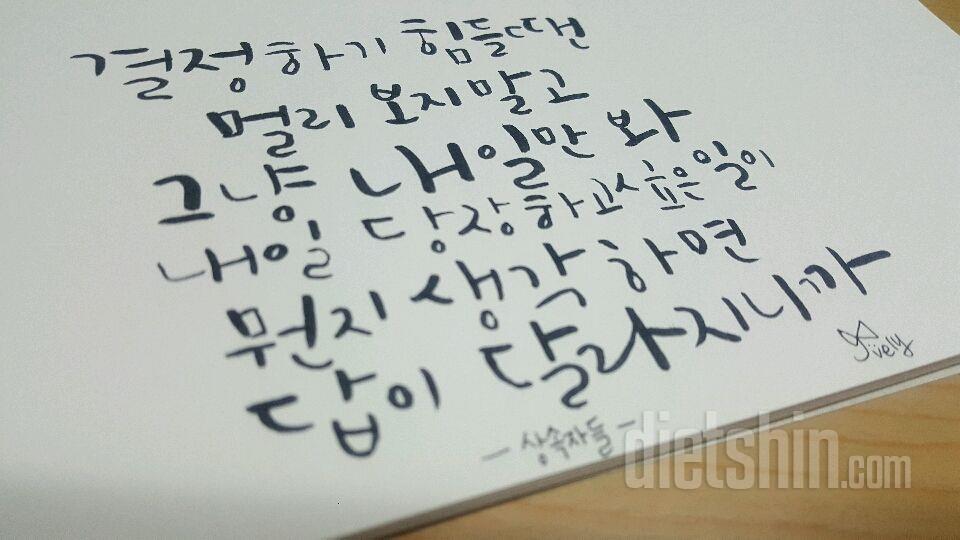 결정하기 힘들땐
멀리 보지말고
그냥 내일만 봐
내일 당장하고싶은일이
뭔지 생각하면
답이 달라지니까
- 상속자들 -
dietshin.com